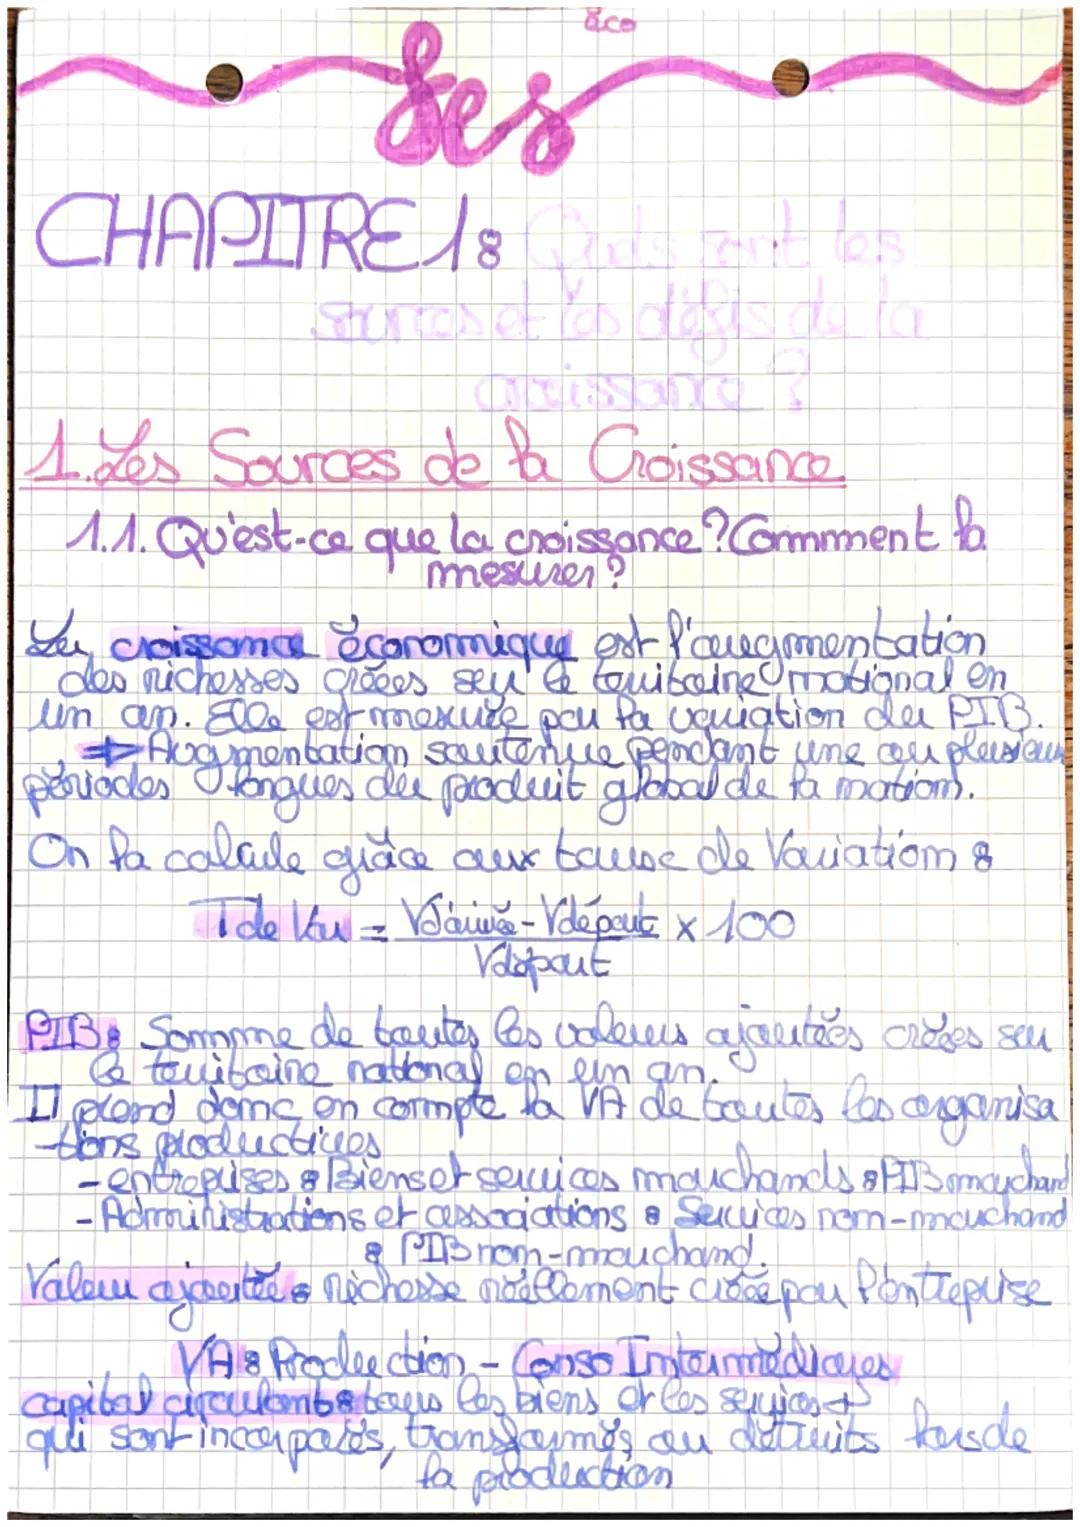 éco
Ses
CHAPITRE 1 : Quels sont les
sources et les défis de la
croissance ?
1. Les Sources de la Croissance
1.1. Qu'est-ce que la croissance ? Commment la
mesurer ?
La croissance économique est l'augmentation
des richesses créées sur le territoire national en
un an. Elle est mesurée par la variation du PIB.
⇒ Augmentation soutenue pendant une ou plusieurs
périodes longues du produit global de la nation.
On la calcule grâce aux taux de Variation :
T de Var = VD'arrivée - Vdéparts x 100
Vdépart
PIB : Somme de toutes les valeurs ajoutées créées sur
le territoire national en un an.
Il prend donc en compte la VA de toutes les organisa
-tions productives
- entreprises : Biens et services marchands : PIB marchand
- Administrations et associations : Services non-marchand
: PIB non-marchand.
Valeur ajoutée : richesse réellement créée par l'entreprise
VA : Production - Conso Intermédiaires
capital circulant : tous les biens et les services
qui sont incorporés, transformés, ou détruits lors de
la production